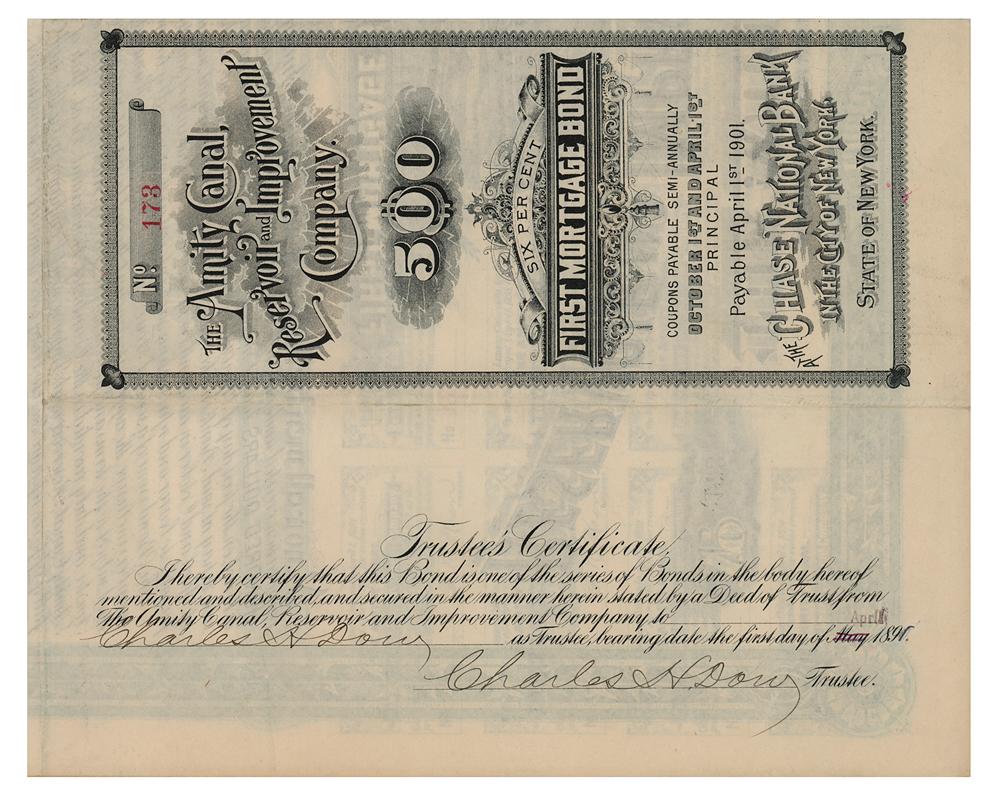 No. 173
THE Amity Canal,
Reservoir and Improvement
Company.
$500
SIX PER CENT
FIRST MORTGAGE BOND
COUPONS PAYABLE SEMI-ANNUALLY
OCTOBER 1ST AND APRIL 1ST
PRINCIPAL
Payable April 1ST 1901.
AT THE CHASE NATIONAL BANK
IN THE CITY OF NEW YORK,
STATE OF NEW YORK.
Trustee's Certificate.
I hereby certify that this Bond is one of the series of Bonds in the body hereof
mentioned and described, and secured in the manner herein stated by a Deed of Trust from
The Amity Canal, Reservoir and Improvement Company to
April
Charles H Dow as Trustee, bearing date the first day of May 1891.
Charles H Dow Trustee.